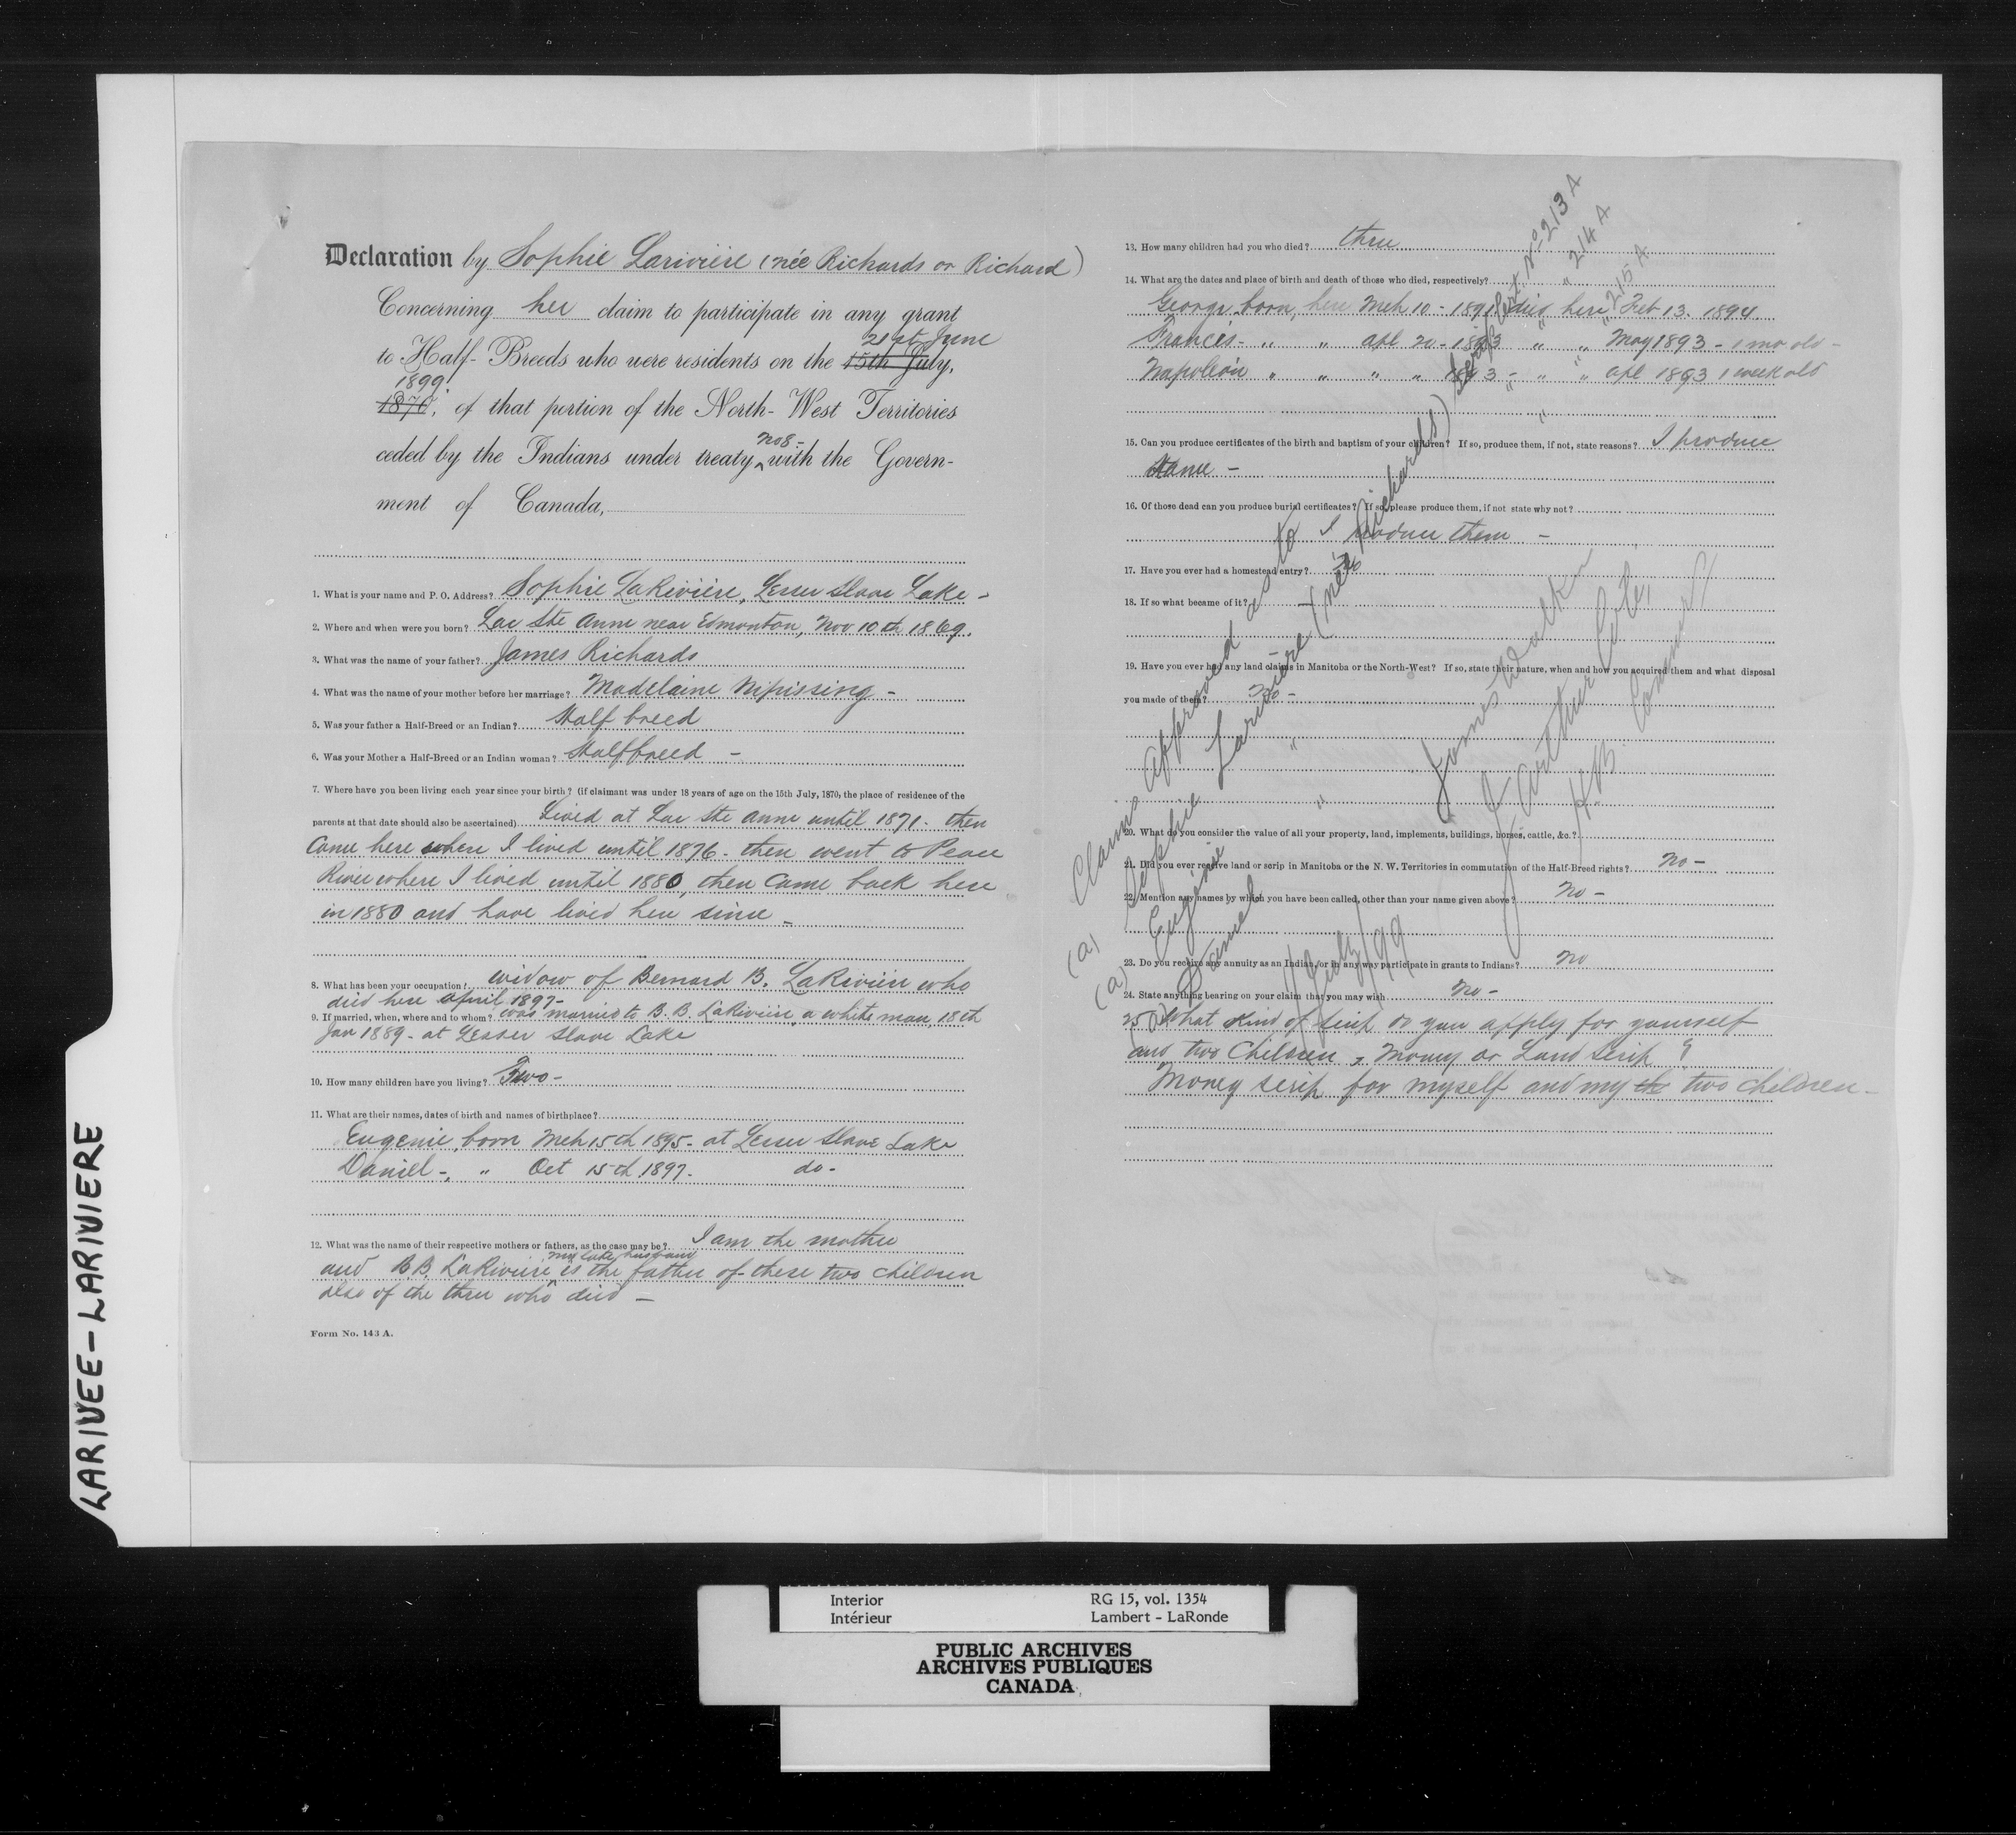 Declaration by Sophie Lariviere (née Richards or Richard)
Concerning her claim to participate in any grant
21st June
to Half-Breeds who were residents on the 15th July,
1899
1870, of that portion of the North-West Territories
No 8-
ceded by the Indians under treaty with the Govern-
ment of Canada,
1. What is your name and P. O. Address? Sophie LaRivière, Lesser Slave Lake -
2. Where and when were you born? Lac Ste Anne near Edmonton, Nov 10th 1869.
3. What was the name of your father? James Richards
4. What was the name of your mother before her marriage? Madelaine Nipissing -
5. Was your father a Half-Breed or an Indian? Half breed
6. Was your Mother a Half-Breed or an Indian woman? Halfbreed -
7. Where have you been living each year since your birth? (if claimant was under 18 years of age on the 15th July, 1870, the place of residence of the
parents at that date should also be ascertained) Lived at Lac Ste Anne until 1871. then
Came here where I lived until 1876. then went to Peace
River where I lived until 1880, then Came back here
in 1880 and have lived here since -
8. What has been your occupation? widow of Bernard B. LaRiviere who
died here april 1897-
9. If married, when, where and to whom? was married to B. B. LaRiviere, a white man, 18th
Jan 1889- at Lesser Slave Lake
10. How many children have you living? Two -
11. What are their names, dates of birth and names of birthplace?
Eugenie, born Mch 15th 1895- at Lesser Slave Lake
Daniel -, " Oct 15th 1897. do-
12. What was the name of their respective mothers or fathers, as the case may be? I am the mother
my late husband
and B.B. LaRiviere is the father of these two children
also of the three who died -
Form No. 143 A.
13. How many children had you who died? three
14. What are the dates and place of birth and death of those who died, respectively?
George born, here Mch 10 - 1891 died here Feb 13. 1894.
Francis - " " apl 20 - 1893 " " May 1893 - 1 mo old -
Napoleon " " " " 1893 - " " apl 1893 1 week old
15. Can you produce certificates of the birth and baptism of your children? If so, produce them, if not, state reasons? I produce
same -
16. Of those dead can you produce burial certificates? If so, please produce them, if not state why not?
I produce them -
17. Have you ever had a homestead entry? No
18. If so what became of it?
19. Have you ever had any land claims in Manitoba or the North-West? If so, state their nature, when and how you acquired them and what disposal
you made of them? No -
20. What do you consider the value of all your property, land, implements, buildings, horses, cattle, &c.?
21. Did you ever receive land or scrip in Manitoba or the N. W. Territories in commutation of the Half-Breed rights? No -
22. Mention any names by which you have been called, other than your name given above? No -
23. Do you receive any annuity as an Indian, or in any way participate in grants to Indians? No
24. State anything bearing on your claim that you may wish No -
25 What kind of scrip do you apply for yourself
and two Children, Money or Land Scrip?
Money scrip for myself and my the two children -
Claims approved as to
(a) Sophie Lariviere (née Richards) Scrip Cert. No 213 A
(a) Eugenie " " " " 214 A
Daniel " " " " 215 A
July/99
James Walker
J. Arthur Coté,
H.B. Comm'rs
LARIVEE-LARIVIERE
Interior
Intérieur
RG 15, vol. 1354
Lambert - LaRonde
PUBLIC ARCHIVES
ARCHIVES PUBLIQUES
CANADA